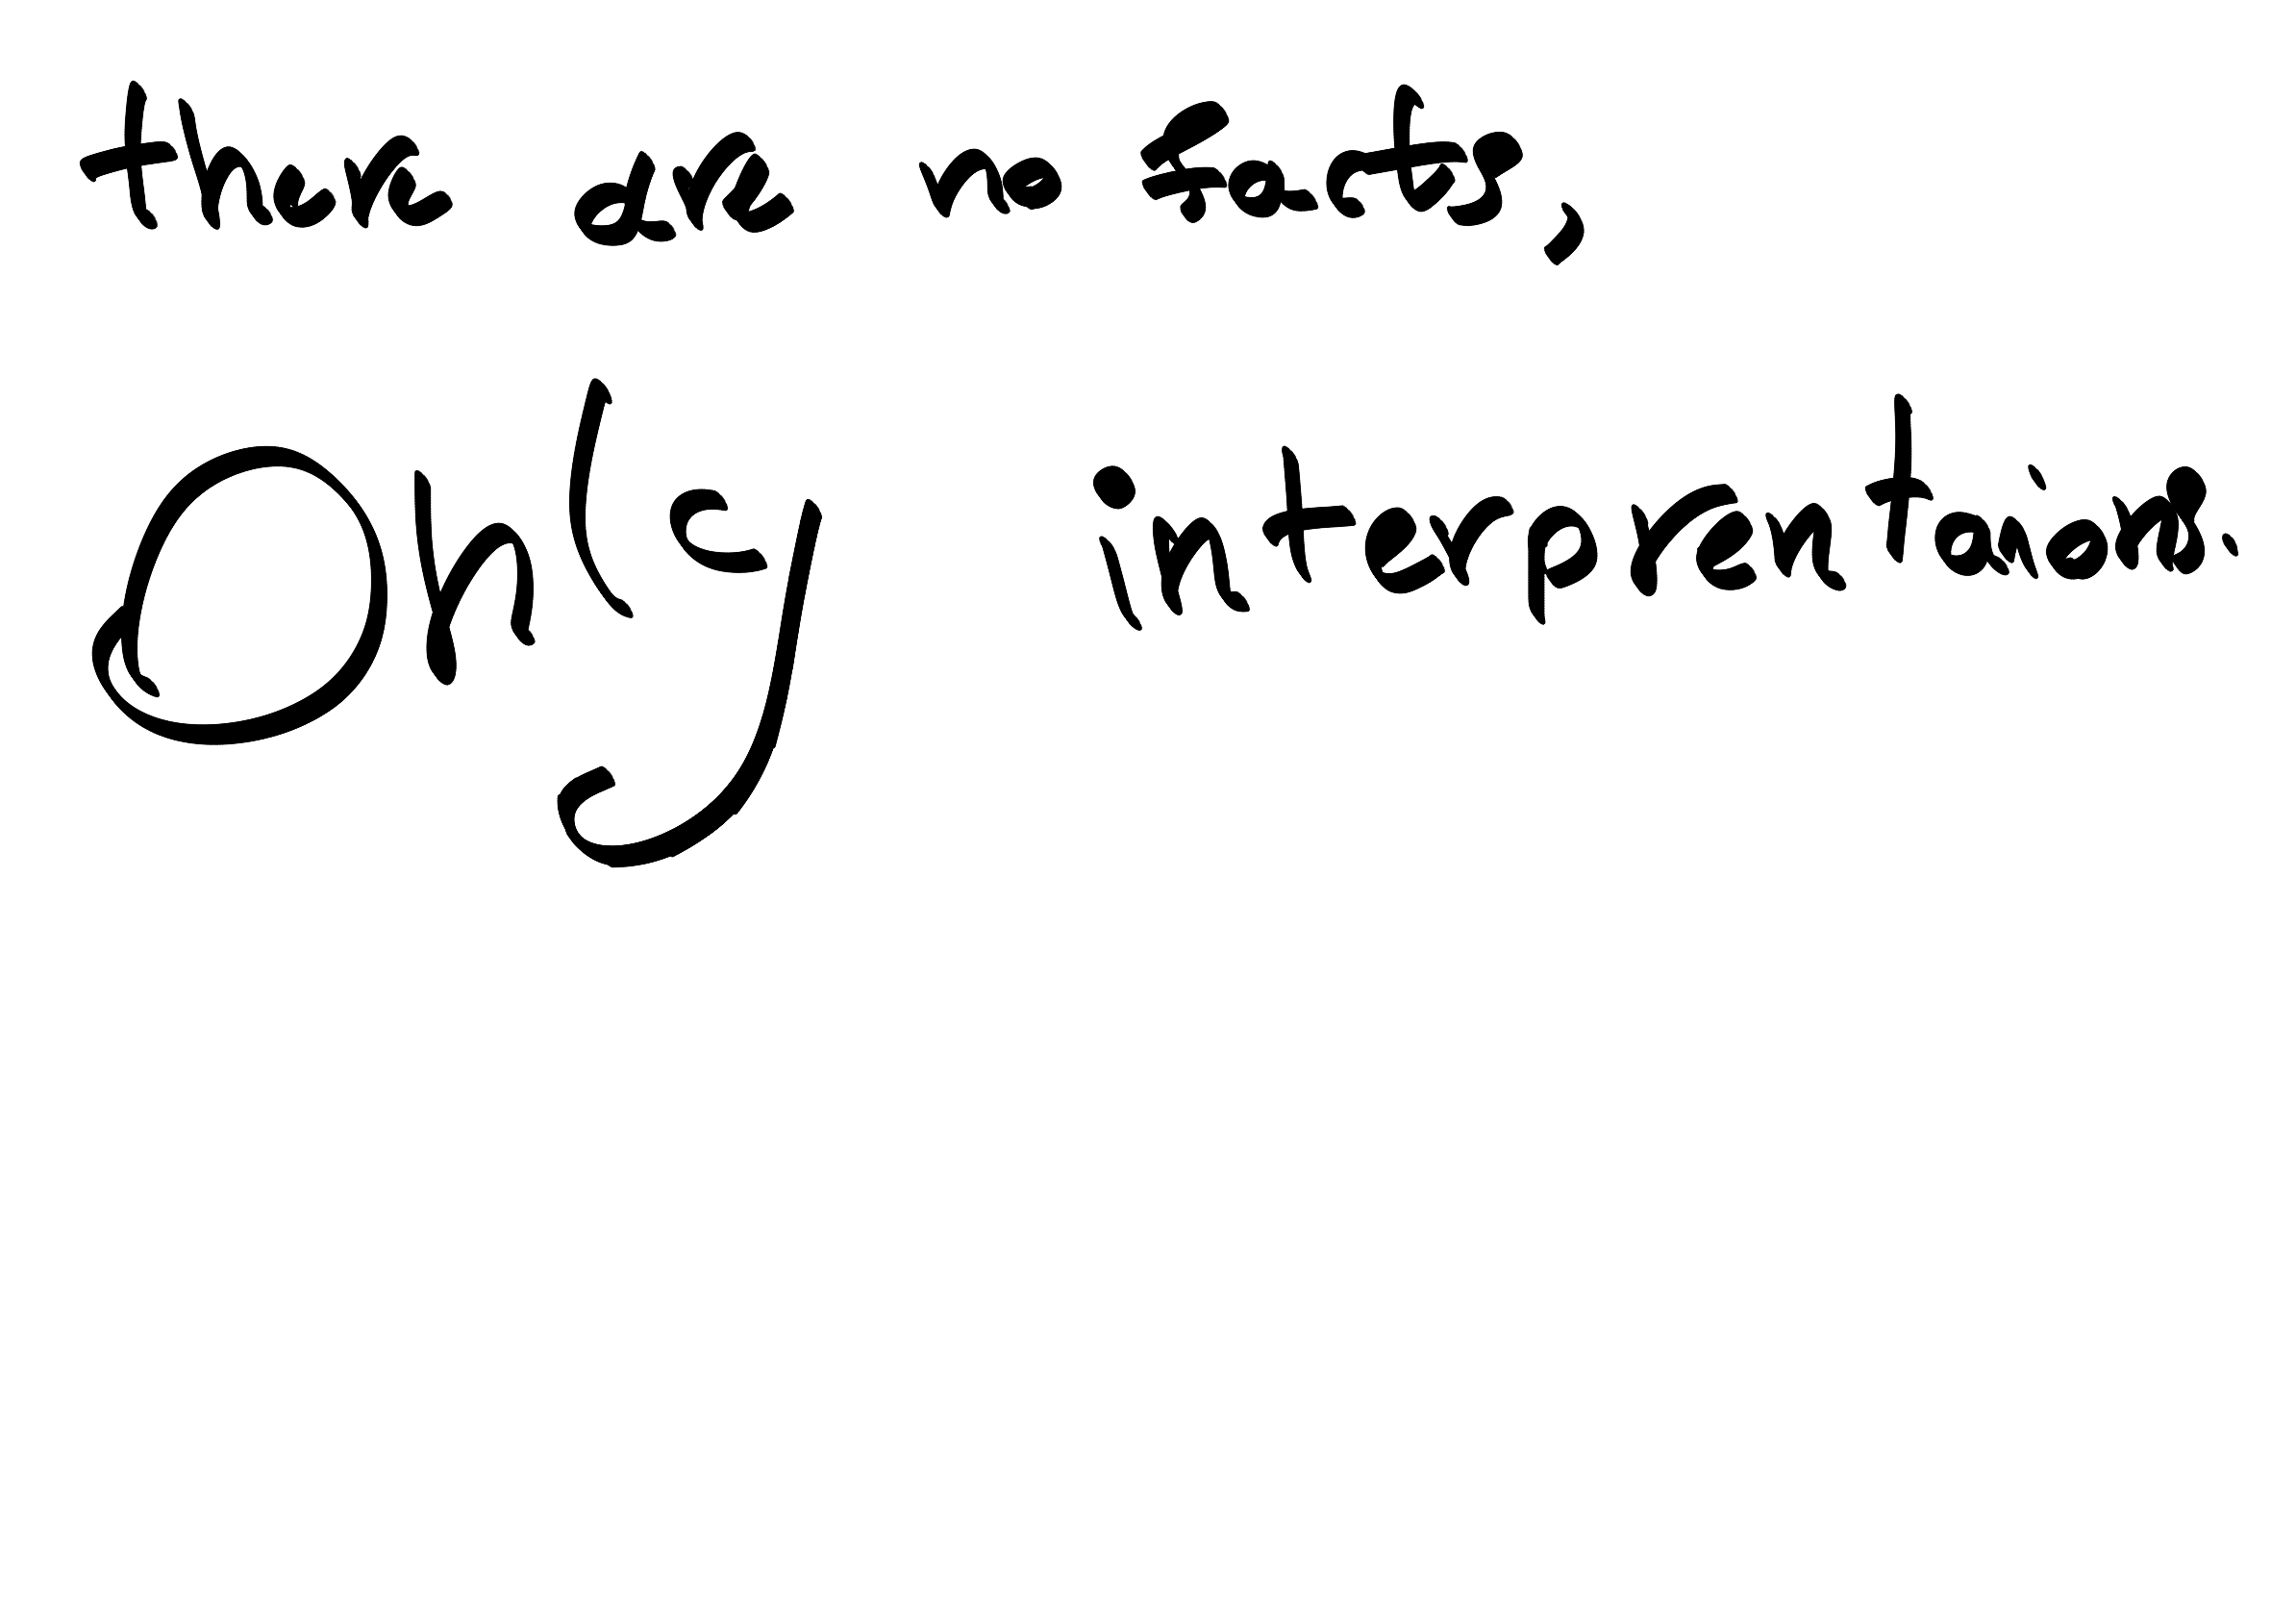 there are no facts,
Only interprentaions.